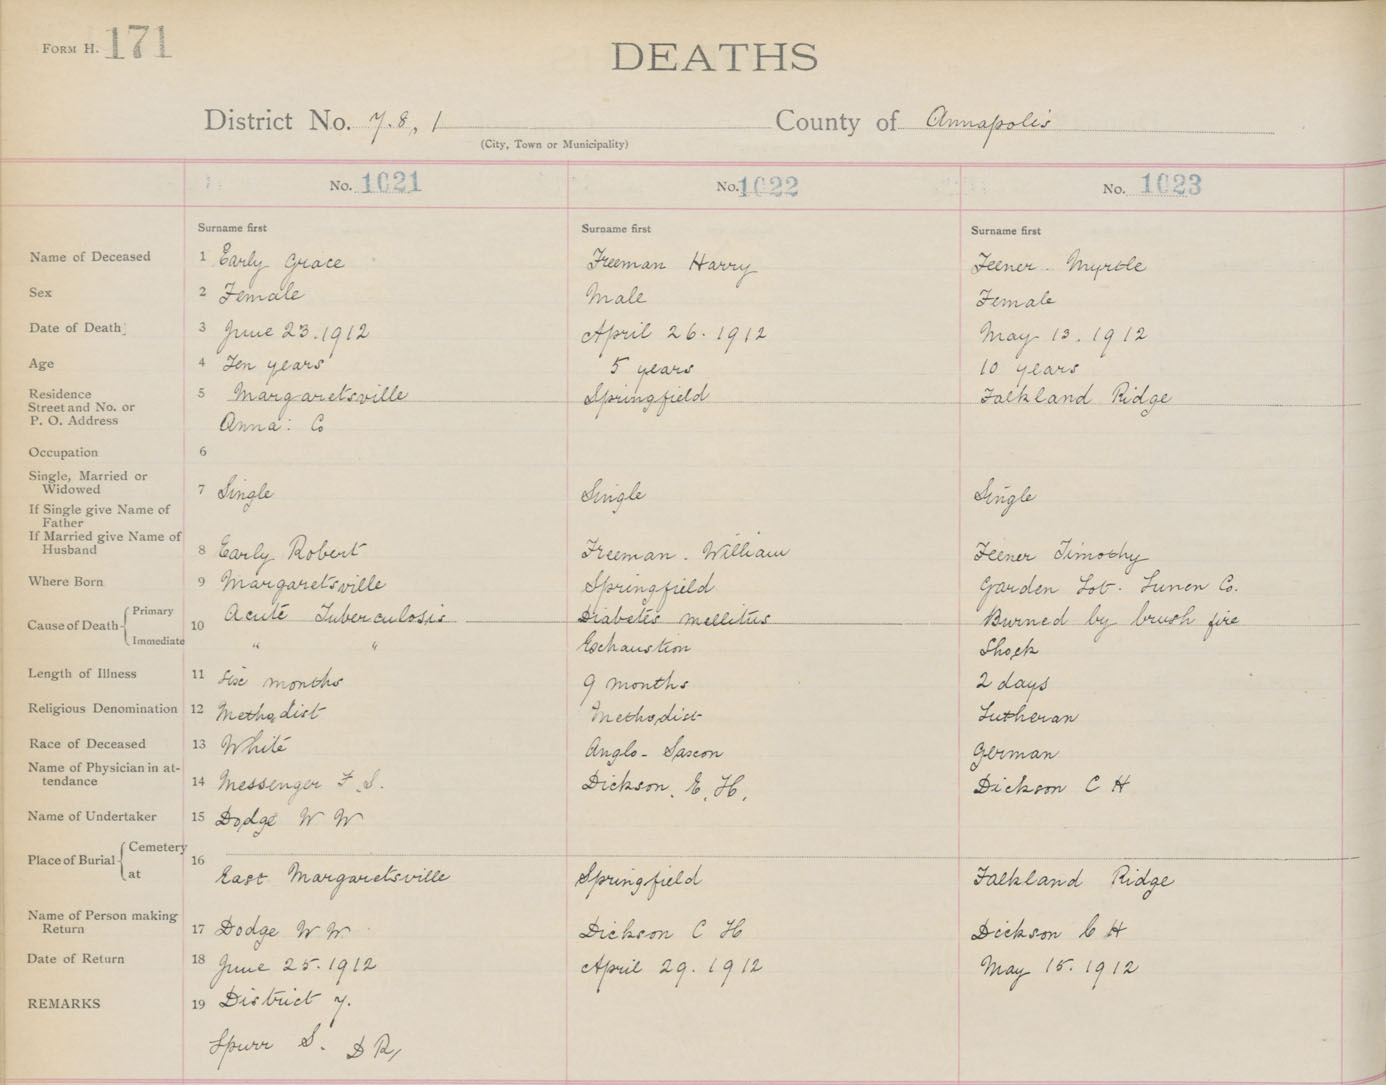 FORM H. 171
DEATHS
District No. 7.8, 1 County of Annapolis
(City, Town or Municipality)
No. 1021 No. 1022 No. 1023
Surname first Surname first Surname first
Name of Deceased 1 Early Grace Freeman Harry Feener Myrtle
Sex 2 Female Male Female
Date of Death 3 June 23. 1912 April 26. 1912 May 13. 1912
Age 4 Ten years 5 years 10 years
Residence 5 Margaretsville Springfield Falkland Ridge
Street and No. or
P. O. Address Anna: Co
Occupation 6
Single, Married or
Widowed 7 Single Single Single
If Single give Name of
Father
If Married give Name of
Husband 8 Early Robert Freeman. William Feener Timothy
Where Born 9 Margaretsville Springfield Garden Lot. Lunen Co.
Cause of Death Primary 10 Acute Tuberculosis Diabetes mellitus Burned by brush fire
Immediate " " Exhaustion Shock
Length of Illness 11 Six months 9 months 2 days
Religious Denomination 12 Methodist Methodist Lutheran
Race of Deceased 13 White Anglo-Saxon German
Name of Physician in at-
tendance 14 Messenger F. S. Dickson. E. H. Dickson C H
Name of Undertaker 15 Dodge W W
Place of Burial Cemetery 16
at East Margaretsville Springfield Falkland Ridge
Name of Person making
Return 17 Dodge W W Dickson C H Dickson C H
Date of Return 18 June 25. 1912 April 29. 1912 May 15. 1912
REMARKS 19 District 7.
Spurr S. D R,